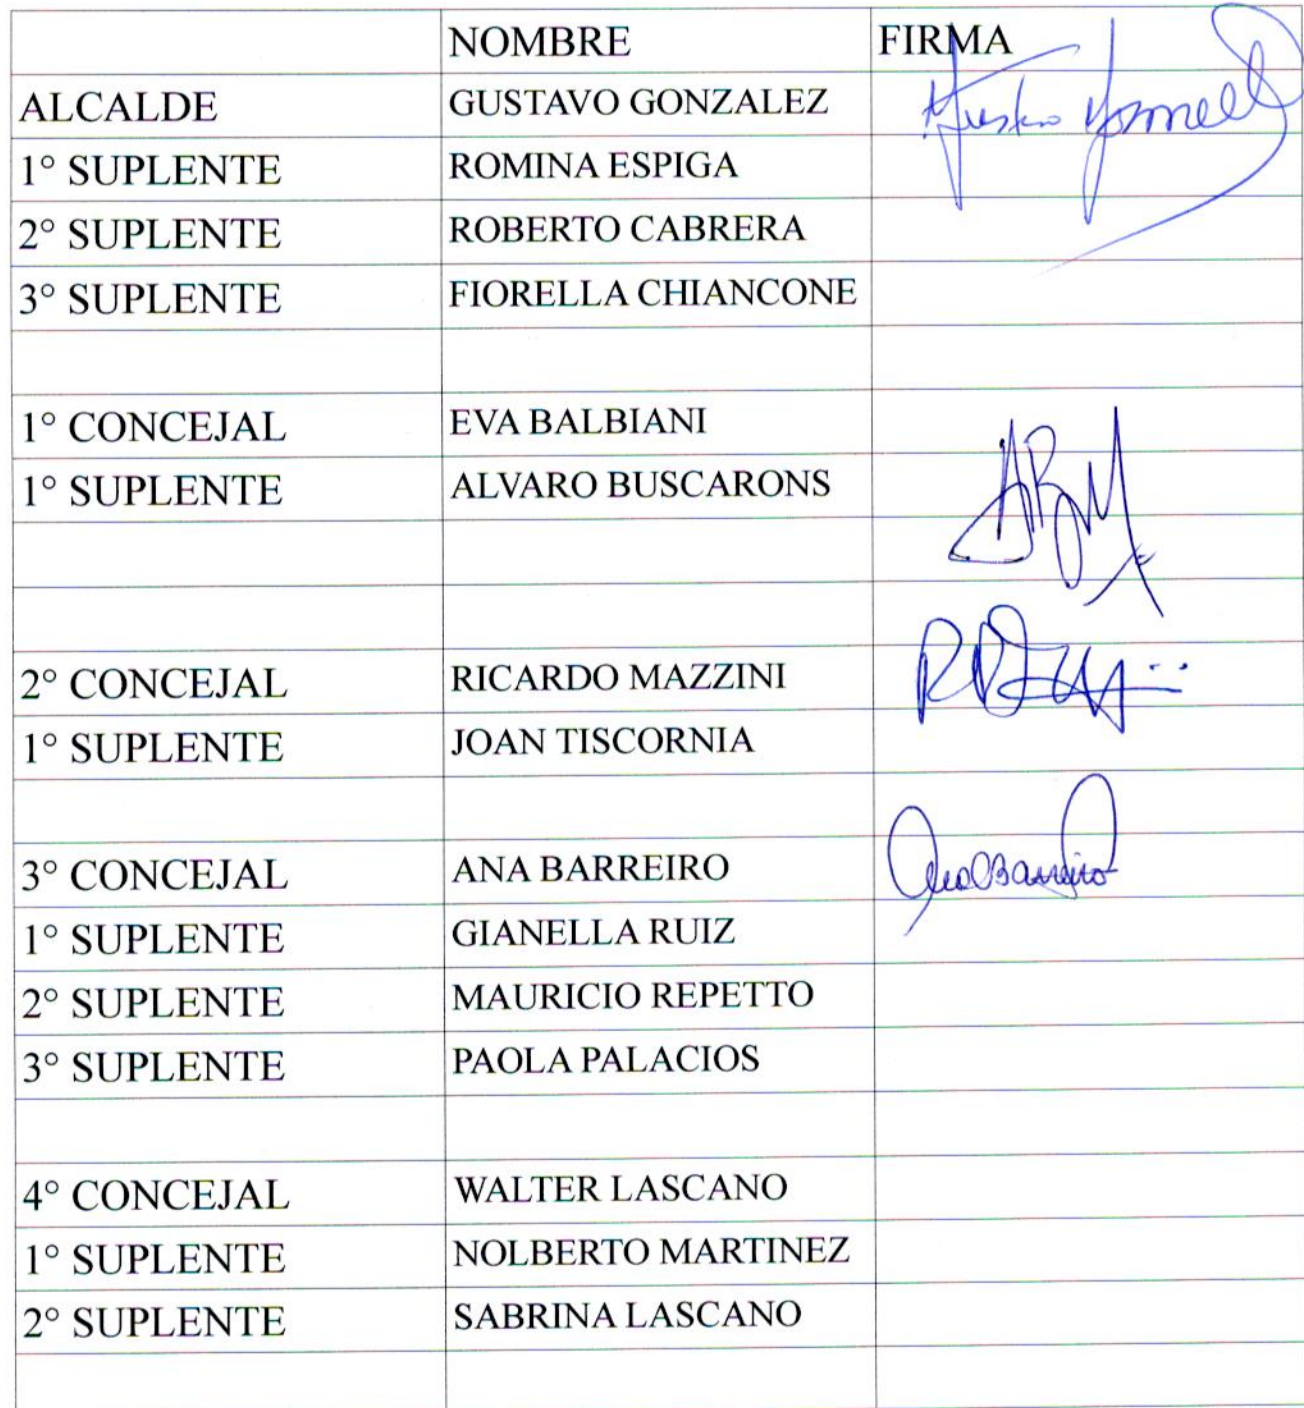 NOMBRE FIRMA
ALCALDE GUSTAVO GONZALEZ
1° SUPLENTE ROMINA ESPIGA
2° SUPLENTE ROBERTO CABRERA
3° SUPLENTE FIORELLA CHIANCONE
1° CONCEJAL EVA BALBIANI
1° SUPLENTE ALVARO BUSCARONS
2° CONCEJAL RICARDO MAZZINI
1° SUPLENTE JOAN TISCORNIA
3° CONCEJAL ANA BARREIRO Ana Barreiro
1° SUPLENTE GIANELLA RUIZ
2° SUPLENTE MAURICIO REPETTO
3° SUPLENTE PAOLA PALACIOS
4° CONCEJAL WALTER LASCANO
1° SUPLENTE NOLBERTO MARTINEZ
2° SUPLENTE SABRINA LASCANO